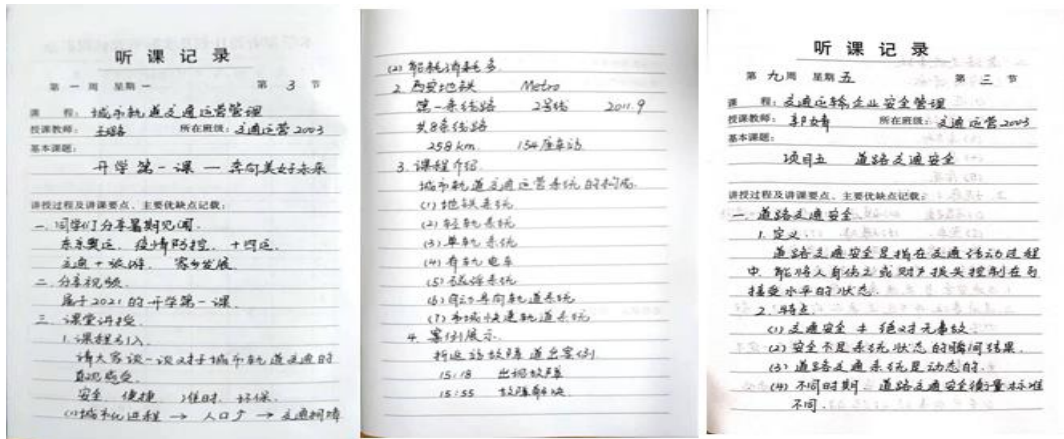 听课记录
第一周 星期一 第3节
课程：城市轨道交通运营管理
授课教师： 所在班级：交通运营2003
基本课题：
开学第一课 — 奔向美好未来
讲授过程及讲课要点、主要优缺点记载：
一. 同学们分享暑期见闻.
东京奥运、疫情防控、十四运、
交通+旅游、家乡发展
二. 分享视频.
属于2021的开学第一课.
三. 课堂讲授.
1. 课程引入.
请大家谈一谈对于城市轨道交通的
直观感受.
安全 便捷 准时 环保.
(1)城市化进程 → 人口↗ → 交通拥堵
(2) 能耗消耗多.
2. 西安地铁 Metro
第一条线路 2号线 2011.9
共8条线路
258km. 154座车站
3. 课程介绍.
城市轨道交通运营系统的构成.
(1) 地铁系统
(2) 轻轨系统
(3) 单轨系统
(4) 有轨电车
(5) 磁浮系统
(6) 自动导向轨道系统
(7) 市域快速轨道系统
4. 案例展示.
折返站故障 道岔案例
15:18 出现故障
15:55 故障解决
听课记录
第九周 星期五 第三节
课程：交通运输企业安全管理
授课教师： 所在班级：交通运营2003
基本课题：
项目五 道路交通安全
讲授过程及讲课要点、主要优缺点记载：
一. 道路交通安全
1. 定义
道路交通安全是指在交通活动过程
中,能将人身伤亡或财产损失控制在可
接受水平的状态.
2. 特点
(1) 交通安全 ≠ 绝对无事故.
(2) 安全不是系统状态的瞬间结果.
(3) 道路交通系统是动态的.
(4) 不同时期,道路交通安全衡量标准
不同.